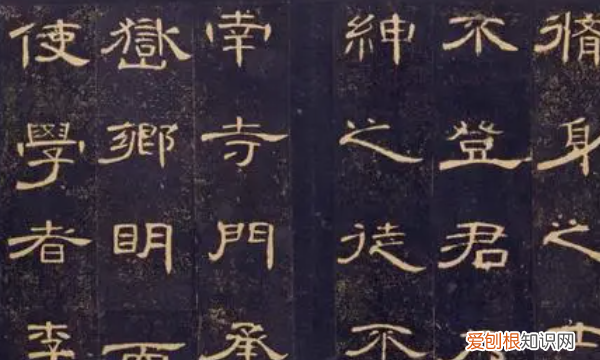 脩身之
不登君
紳之徒不
幸寺門承
嶽鄉明
使學者
爱刨根知识网